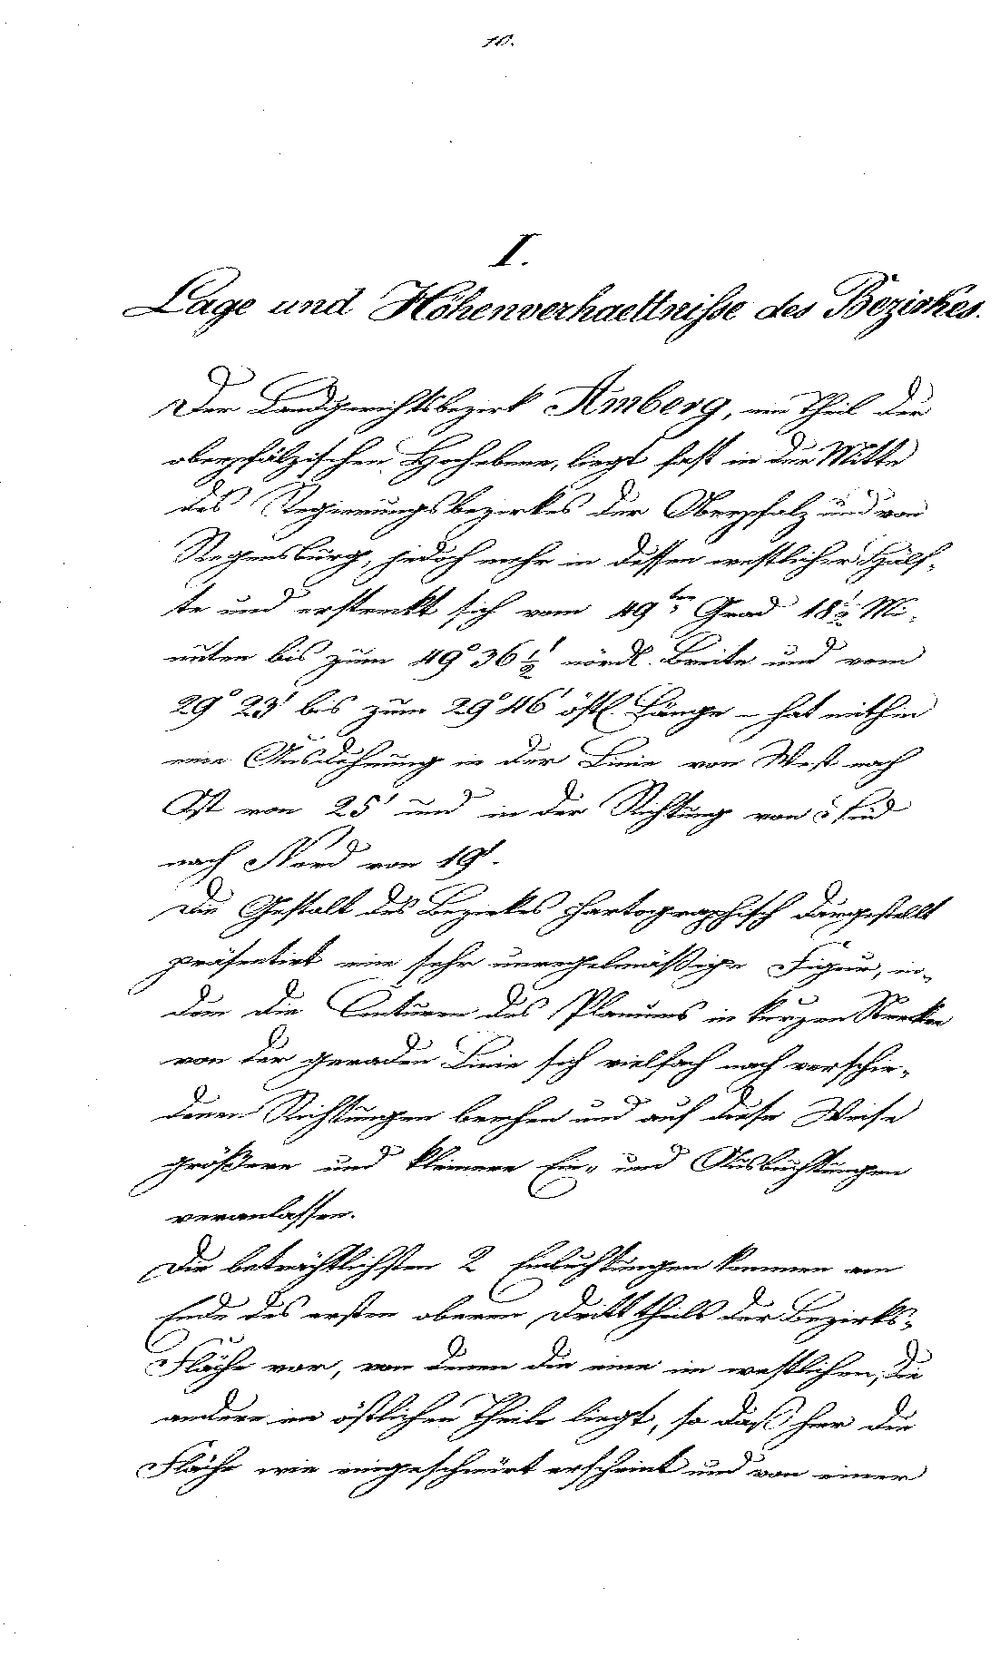 10.
I.
Lage und Höhenverhaeltnisse des Bezirkes.
Der Landgerichtsbezirk Amberg, ein Theil der
oberpfälzischen Hochebene, liegt fast in der Mitte
des Regierungsbezirkes der Oberpfalz und von
Regensburg, jedoch mehr in dessen westlicher Hälf-
te und erstreckt sich vom 49ten Grad 18½ Mi-
nuten bis zum 49° 36½' nördl. Breite und vom
29° 23' bis zum 29° 46' östl. Länge – hat mithin
eine Ausdehnung in der Linie von West nach
Ost von 25' und in der Richtung von Süd
nach Nord von 19'.
Die Gestalt des Bezirkes chartographisch dargestellt
präsentirt eine sehr unregelmäßige Figur, in-
dem die Conturen des Planums in kurzen Strecken
von der geraden Linie sich vielfach nach verschie-
denen Richtungen brechen und auf diese Weise
größere und kleinere Ein- und Ausbuchtungen
veranlassen.
Die beträchtlichsten 2 Einbuchtungen kommen am
Ende des ersten oberen Dritttheils der Bezirks-
Fläche vor, von denen die eine im westlichen, die
andere im östlichen Theile liegt, so daß hier die
Fläche wie eingeschnürt erscheint und von einer